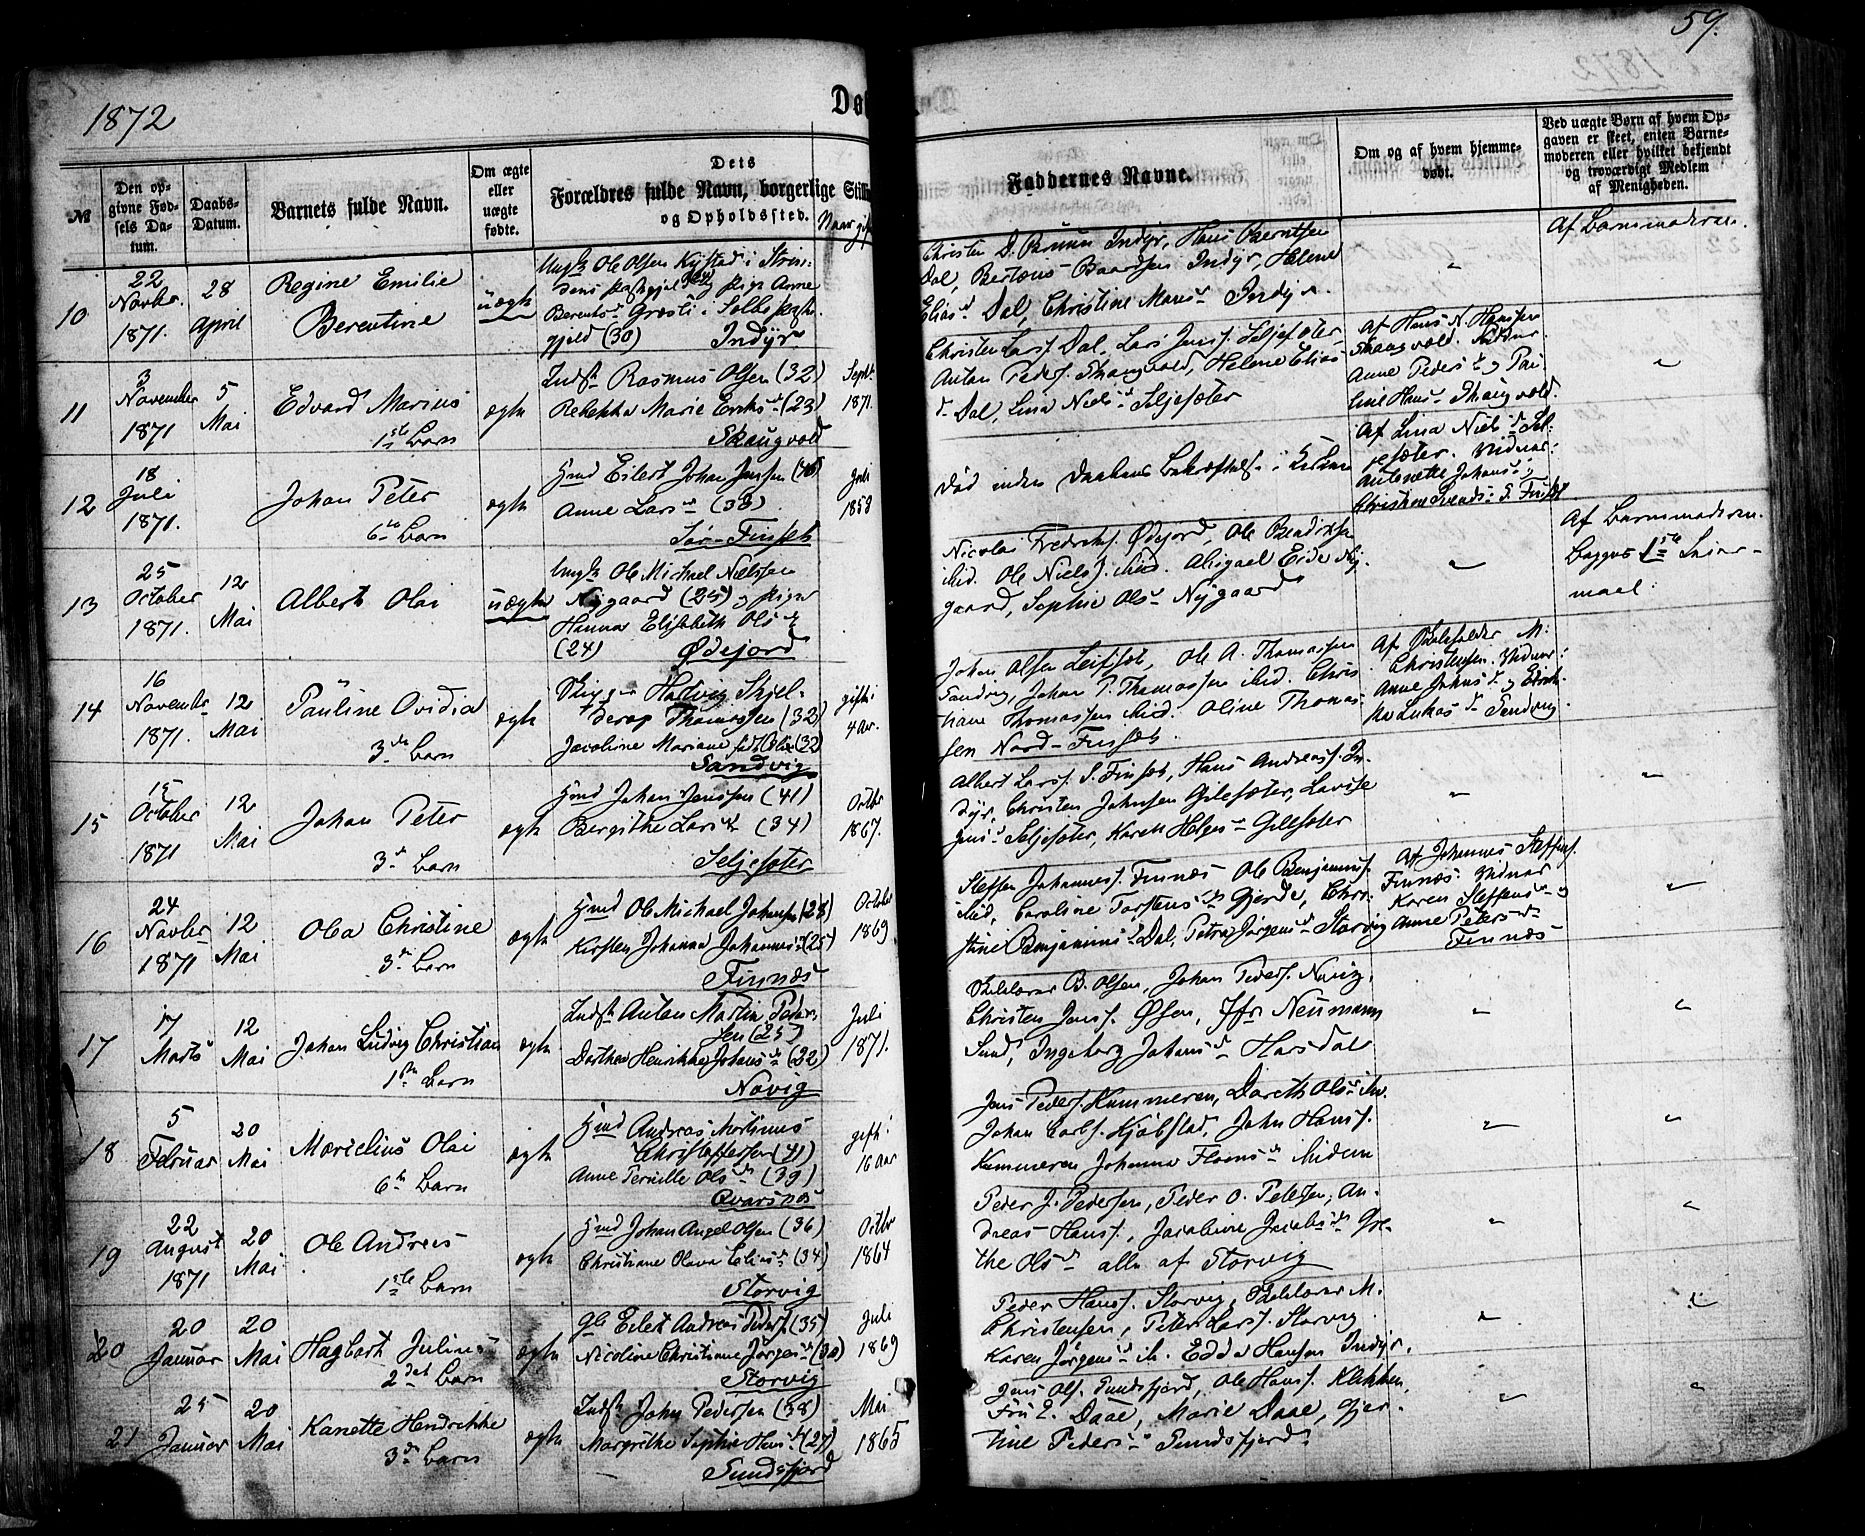 59.
1872
Den opgivne Fødsels Datum.
Daabs-Datum.
Barnets fulde Navn.
Om ægte eller uægte fødte.
Dets Forældres fulde Navn, borgerlige
og Opholdssted.
Faddernes Navne.
Om og af hvem hjemmedøbt.
Ved uægte Børn af hvem Opgaven er skeet, enten Barnemoderen eller hvilket bekjendt og troværdigt Medlem af Menigheden.
10
22
Novbr.
1871.
28
April
Regine Emilie
Berentine
uægte
Ungk Ole Olsen
gjeld (30) Indyr
Christen D. Indyr, Hans Berntsen
Dal, Indyr, Helene
Elias d Dal, Christine Indyr
"
Af Barnmoderen
11
3
November
1871
5
Mai
Edvard Marius
1ste Barn
ægte
Indst Rasmus Olsen (32)
Rebekka Marie Eriks d (23)
Skaugvold
Septbr.
1871.
Christen Lars. Dal, Lars Jens. Seljesæter
Anton Peders. Skaugvold, Helene Elias
d Dal, Lina Niels d Seljesæter
Af Hans N. Hansen
Skaugvold.
Anne Peders d og Pau-
line Hans d Skaugvold.
"
12
18
Juli
1871.
Johan Peter
6te Barn
ægte
Gmd Eilert Johan Jensen
Anne Lars d (38)
Sør-Finset
Juli
1858
Død inden Daabens Bekræftelse i Kirken
Af Lina Niels d Sel-
jesæter.
Antonette Johans d
13
25
October
1871.
12
Mai
Albert Olai
uægte
Ungk Ole Michael Nielssen
Nygaard (25) og Pige
Hanna Elisabeth Ols d
(24) Ødejord
Nicolai Ødejord, Ole
ibid. Ole Niels. ibid. Abigael
gaard, Sophie Ols d Nygaard
"
Af Barnmoderen.
Begges 1ste Leier-
maal
14
16
November
1871.
12
Mai
Pauline Ovidia
3die Barn
ægte
Hartvig Skjel-
derop Thomassen (32)
Jacobine Mariane
Sandvig
gift i
4 Aar.
Johan Olsen Leifset, Ole A. Thomassen
Sandvig, Johan P. Thomassen ibid. Chris
tiane Thomassen ibid. Oline Thomas-
sen Nord-Finset.
M.
Christensen.
Anne Johns d
Lukas d Sandvig
15
15
October
1871
12
Mai
Johan Peter
3die Barn
ægte
Gmd Johan Jenssen (41)
Bergithe Lars d (34)
Seljesæter
Octbr
1867.
Albert Lars. S. Finset, Hans Andreas. In-
dyr, Christen Johnsen Gilesæter, Lovise
Jens d Seljesæter, Karen Helges d Gilesæter
"
"
16
24
Novbr
1871
12
Mai
Olea Christine
3die Barn
ægte
Gmd Ole Michael Johansen (28)
Kirsten Johanna Johannes d (25)
Finnæs
October
1869
Steffen Johannes. Finnæs Ole Benjamins.
ibid, Caroline Torstens d Gjerde, Chri-
stine Benjamins d Dal, Petra Jørgens d Storvig
Af Johannes Steffens.
Finnæs
Karen Steffens d og
Anne Peters d
Finnæs
"
17
17
Marts
12
Mai
Johan Ludvig Christian
1ste Barn
ægte
Indst Anton Martin Peder-
sen (25)
Dorthea Henrikke Johans d (22)
Novig
Juli
1871.
B. Olsen, Johan Peders. Novig,
Christen Jens. Øsen, Jfr Neumann
Sund, Ingeborg Johans d Horsdal
"
"
18
5
Februar
20
Mai
Marelius Olai
6te Barn
ægte
Gmd Andreas Mortinus
Christoffersen (41)
Anne Pernille Ols d (39)
Qvarsnæs
gift i
16 Aar
Jens Peders. Kummeren, Doreth Ols d ibid.
Johan Carls. Kjøbstad, John Hans.
Kummeren Johanna Floens d ibidem
"
"
19
22
August
1871
20
Mai
Ole Andreas
1ste Barn
ægte
Gmd Johan Angel Olsen (36)
Christiane Olava Elias d (34)
Storvig
Octbr
1864
Peder J. Pedersen, Peder O. Petersen, An-
dreas Hans., Jacobine Jacobs d Gre-
the Ols d alle af Storvig
"
"
20
20
Januar
20
Mai
Hagbart Julius
2det Barn
ægte
Gb Eilert Andreas Peders. (35)
Nicoline Christiane Jørgens d (30)
Storvig
Juli
1869
Peder Hans. Storvig, M.
Christensen, Peter Lars. Storvig
Karen Jørgens d ib. Edda Hansen Indyr.
"
"
21
25
Januar
20
Mai
Kanette Hendrikke
3die Barn
ægte
Indst John Pedersen (38)
Margrethe Sophie Hans d (27)
Sundsfjord
Mai
1865
Jens Ols. Sundsfjord, Ole Hans. Klakken,
Fru E. Daae, Marie Daae, Gjer-
tine Peders d Sundsfjord
"
"